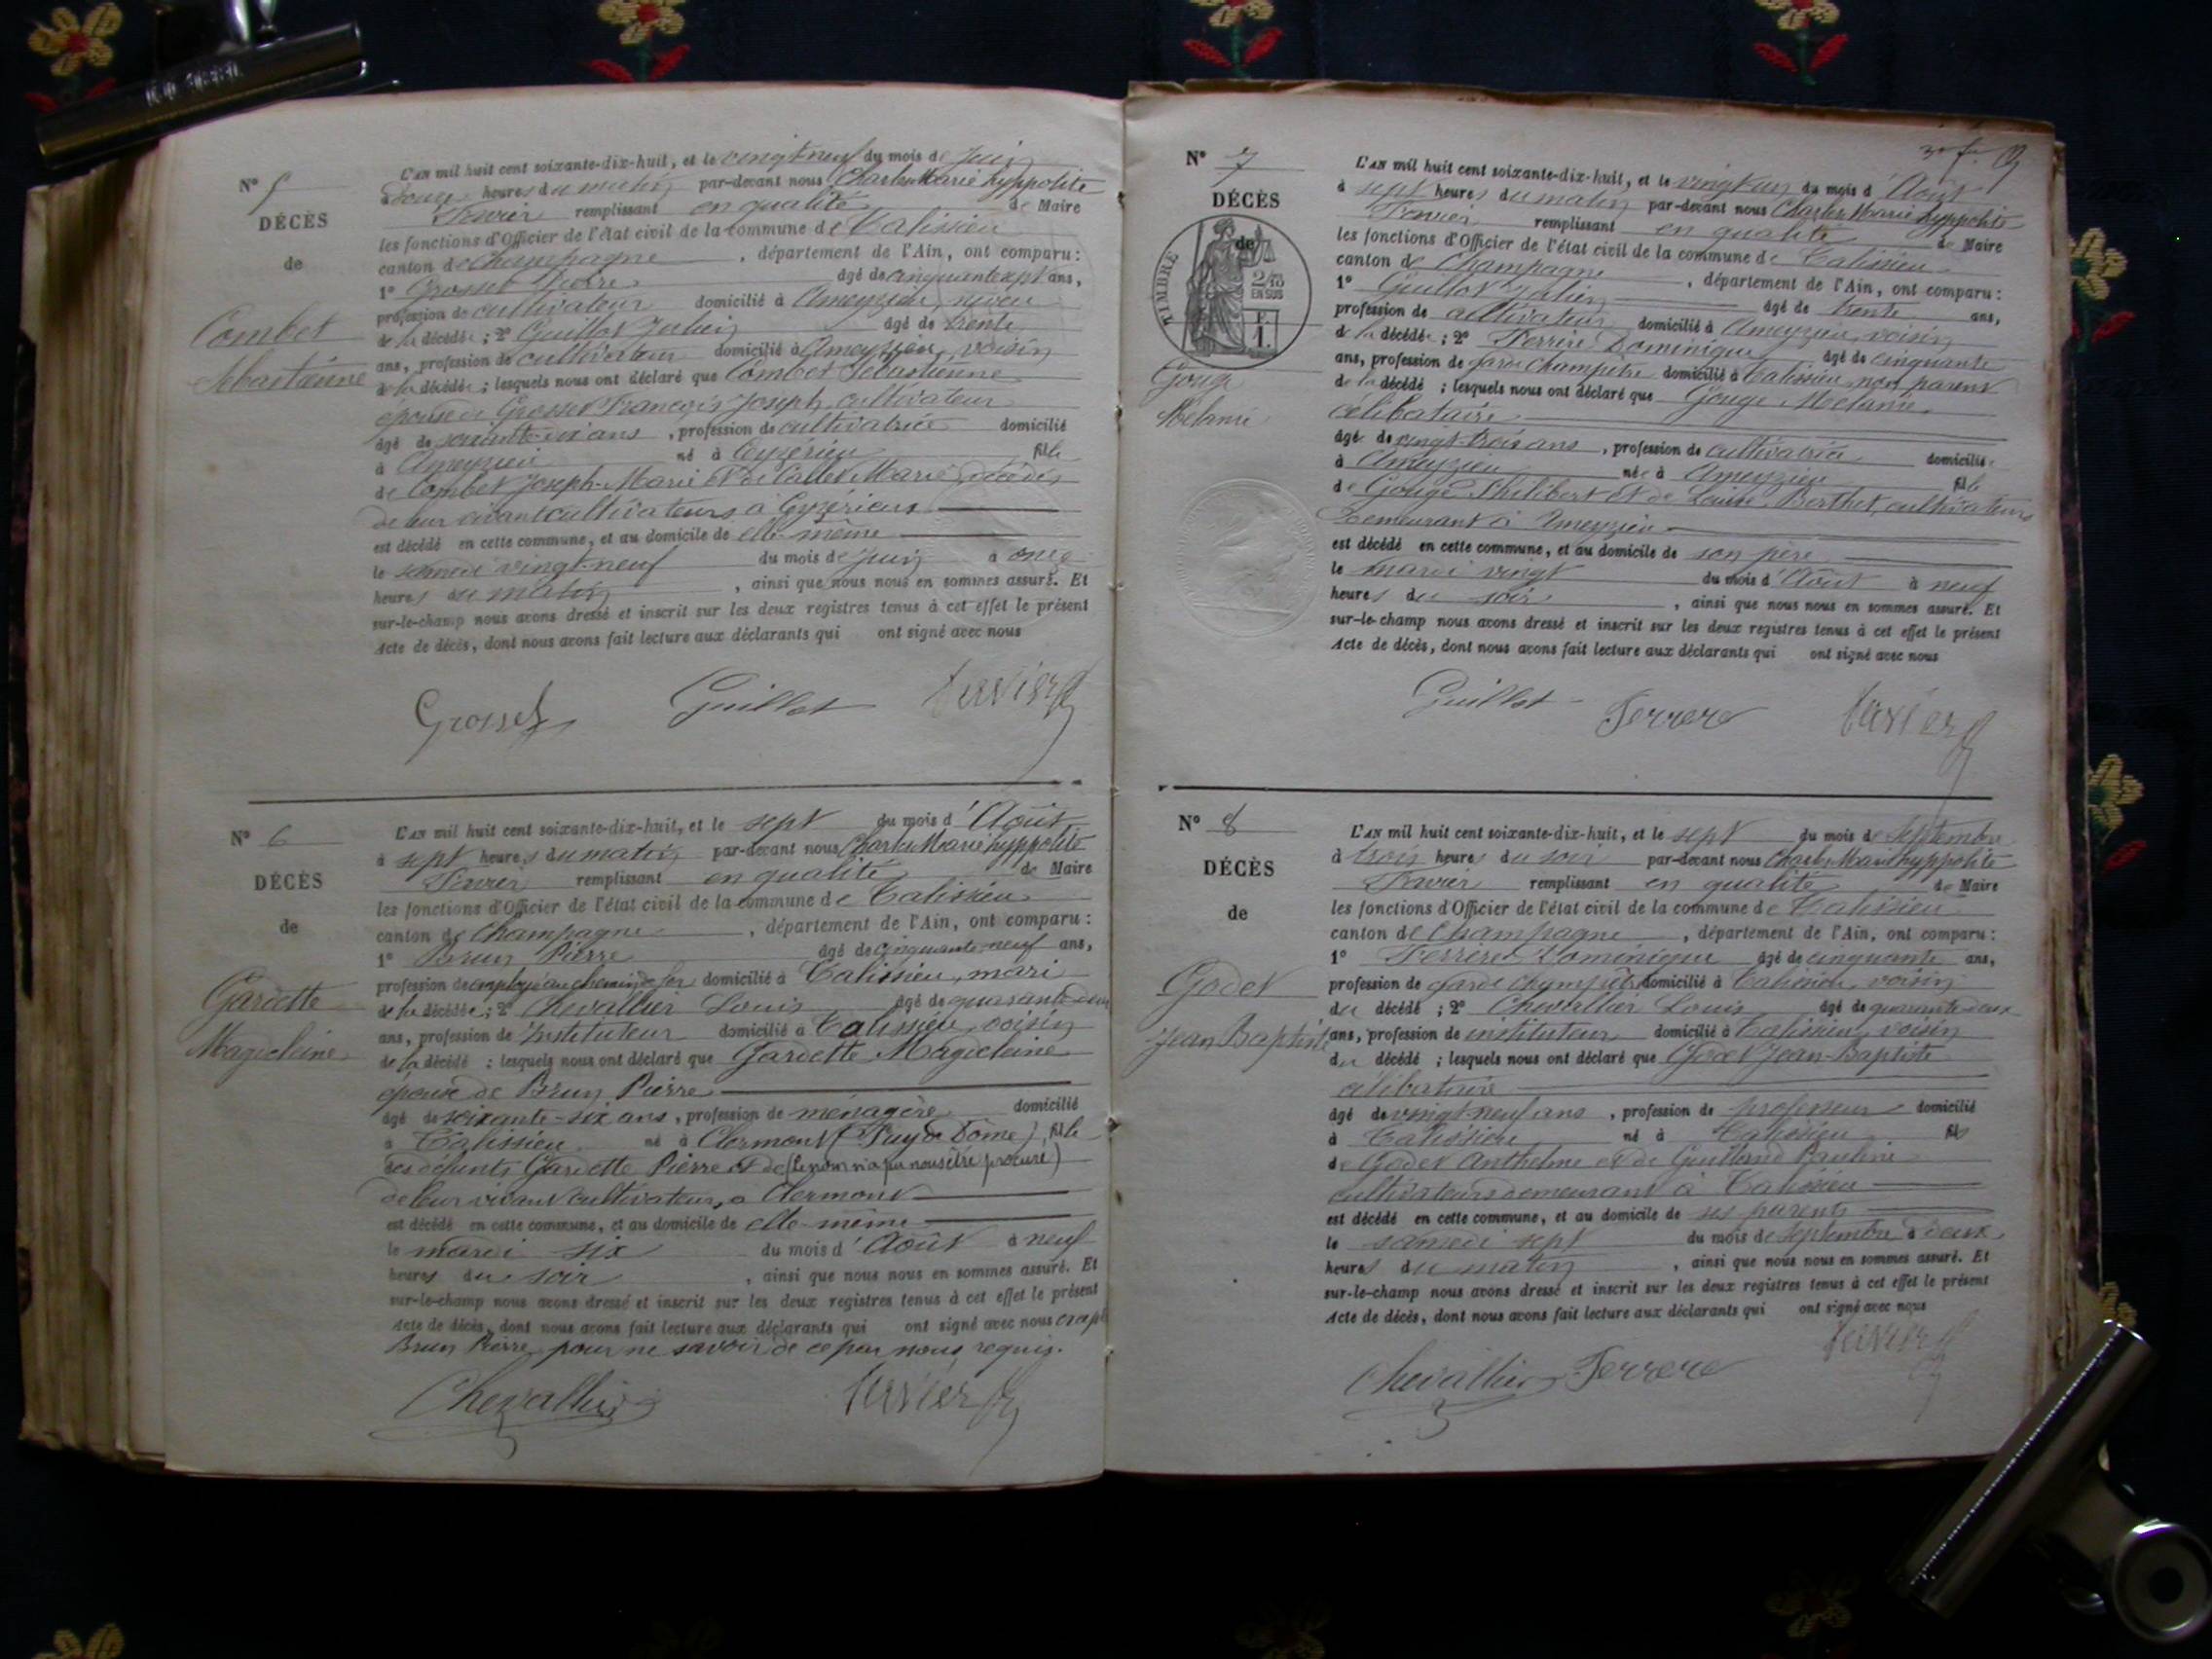 N° 5
DÉCÈS
de
Combet
Sébastienne
L'AN mil huit cent soixante-dix-huit, et le vingt neuf du mois de Juin
à Douze heures du matin par-devant nous Charles Marie hyppolite
remplissant en qualité de Maire
les fonctions d'Officier de l'état civil de la commune de Talissieu
canton de Champagne, département de l'Ain, ont comparu :
1° Grosset âgé de cinquante sept ans,
profession de cultivateur domicilié à Ameyzieu, neveu
de la décédée ; 2° Guillot Julien âgé de trente
ans, profession de cultivateur domicilié à Ameyzieu, voisin
de la décédée ; lesquels nous ont déclaré que Combet Sébastienne
épouse de Grosset François Joseph, cultivateur
âgé de ans, profession de cultivatrice domicilié
à Ameyzieu né à Ceyzérieu fille
de Combet Joseph-Marie et de Callet Marie, décédés
de leur vivant cultivateurs à Ceyzérieu
est décédé en cette commune, et au domicile de elle-même
le samedi vingt-neuf du mois de Juin à onze
heures du matin, ainsi que nous nous en sommes assuré. Et
sur-le-champ nous avons dressé et inscrit sur les deux registres tenus à cet effet le présent
Acte de décès, dont nous avons fait lecture aux déclarants qui ont signé avec nous
Grosset Guillot
N° 6
DÉCÈS
de
Gardette
Magdeleine
L'AN mil huit cent soixante-dix-huit, et le sept du mois d'Août
à sept heures du matin par-devant nous Charles Marie hyppolite
remplissant en qualité de Maire
les fonctions d'Officier de l'état civil de la commune de Talissieu
canton de Champagne, département de l'Ain, ont comparu :
1° Brun Pierre âgé de cinquante-neuf ans,
profession de employé au chemin de fer domicilié à Talissieu, mari
de la décédée ; 2° Chevallier Louis âgé de quarante-deux
ans, profession de Instituteur domicilié à Talissieu, voisin
de la décédé ; lesquels nous ont déclaré que Gardette Magdeleine
épouse de Brun Pierre
âgé de soixante-six ans, profession de ménagère domicilié
à Talissieu né à Clermont (Puy de Dôme), fille
des défunts Gardette Pierre et de (le nom n'a pu nous être procuré)
de leur vivant cultivateurs, à Clermont
est décédé en cette commune, et au domicile de elle-même
le mardi six du mois d'Août à neuf
heures du soir, ainsi que nous nous en sommes assuré. Et
sur-le-champ nous avons dressé et inscrit sur les deux registres tenus à cet effet le présent
Acte de décès, dont nous avons fait lecture aux déclarants qui ont signé avec nous
Brun Pierre pour ne savoir de ce par nous requis.
Chevallier
N° 7
DÉCÈS
de
TIMBRE
2/10
EN SUS
F.
1.
Gouge
Mélanie
L'AN mil huit cent soixante-dix-huit, et le vingt un du mois d'Août
à sept heures du matin par-devant nous Charles Marie hyppolite
remplissant en qualité de Maire
les fonctions d'Officier de l'état civil de la commune de Talissieu
canton de Champagne, département de l'Ain, ont comparu :
1° Guillot Julien âgé de trente ans,
profession de cultivateur domicilié à Ameyzieu, voisin
de la décédée ; 2° Ferrere Dominique âgé de cinquante
ans, profession de garde Champêtre domicilié à Talissieu, non parent
de la décédé ; lesquels nous ont déclaré que Gouge Mélanie
célibataire
âgé de vingt-trois ans, profession de cultivatrice domiciliée
à Ameyzieu née à Ameyzieu fille
de Gouge Philibert et de Louise Berthet, cultivateurs
demeurant à Ameyzieu
est décédé en cette commune, et au domicile de son père
le mardi vingt du mois d'Août à neuf
heures du soir, ainsi que nous nous en sommes assuré. Et
sur-le-champ nous avons dressé et inscrit sur les deux registres tenus à cet effet le présent
Acte de décès, dont nous avons fait lecture aux déclarants qui ont signé avec nous
Guillot Ferrere
N° 8
DÉCÈS
de
Godet
Jean Baptiste
L'AN mil huit cent soixante-dix-huit, et le sept du mois de Septembre
à trois heures du soir par-devant nous Charles Marie hyppolite
remplissant en qualité de Maire
les fonctions d'Officier de l'état civil de la commune de Talissieu
canton de Champagne, département de l'Ain, ont comparu :
1° Ferrere Dominique âgé de cinquante ans,
profession de garde champêtre domicilié à Talissieu, voisin
du décédé ; 2° Chevallier Louis âgé de quarante-deux
ans, profession de instituteur domicilié à Talissieu, voisin
du décédé ; lesquels nous ont déclaré que Godet Jean-Baptiste
célibataire
âgé de vingt neuf ans, profession de professeur domicilié
à Talissieu né à Talissieu fils
de Godet Anthelme et de Guilland Pauline
cultivateurs demeurant à Talissieu
est décédé en cette commune, et au domicile de ses parents
le samedi sept du mois de septembre à deux
heures du matin, ainsi que nous nous en sommes assuré. Et
sur-le-champ nous avons dressé et inscrit sur les deux registres tenus à cet effet le présent
Acte de décès, dont nous avons fait lecture aux déclarants qui ont signé avec nous
Chevallier Ferrere